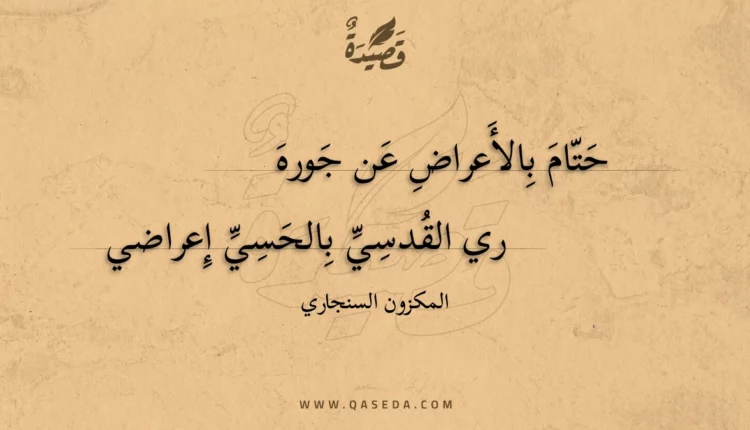 قَصِيدَةٌ
حَتّامَ بِالأَعراضِ عَن جَورهَ
ري القُدسِيِّ بِالحَسِيِّ إِعراضي
المكزون السنجاري
WWW.QASEDA.COM